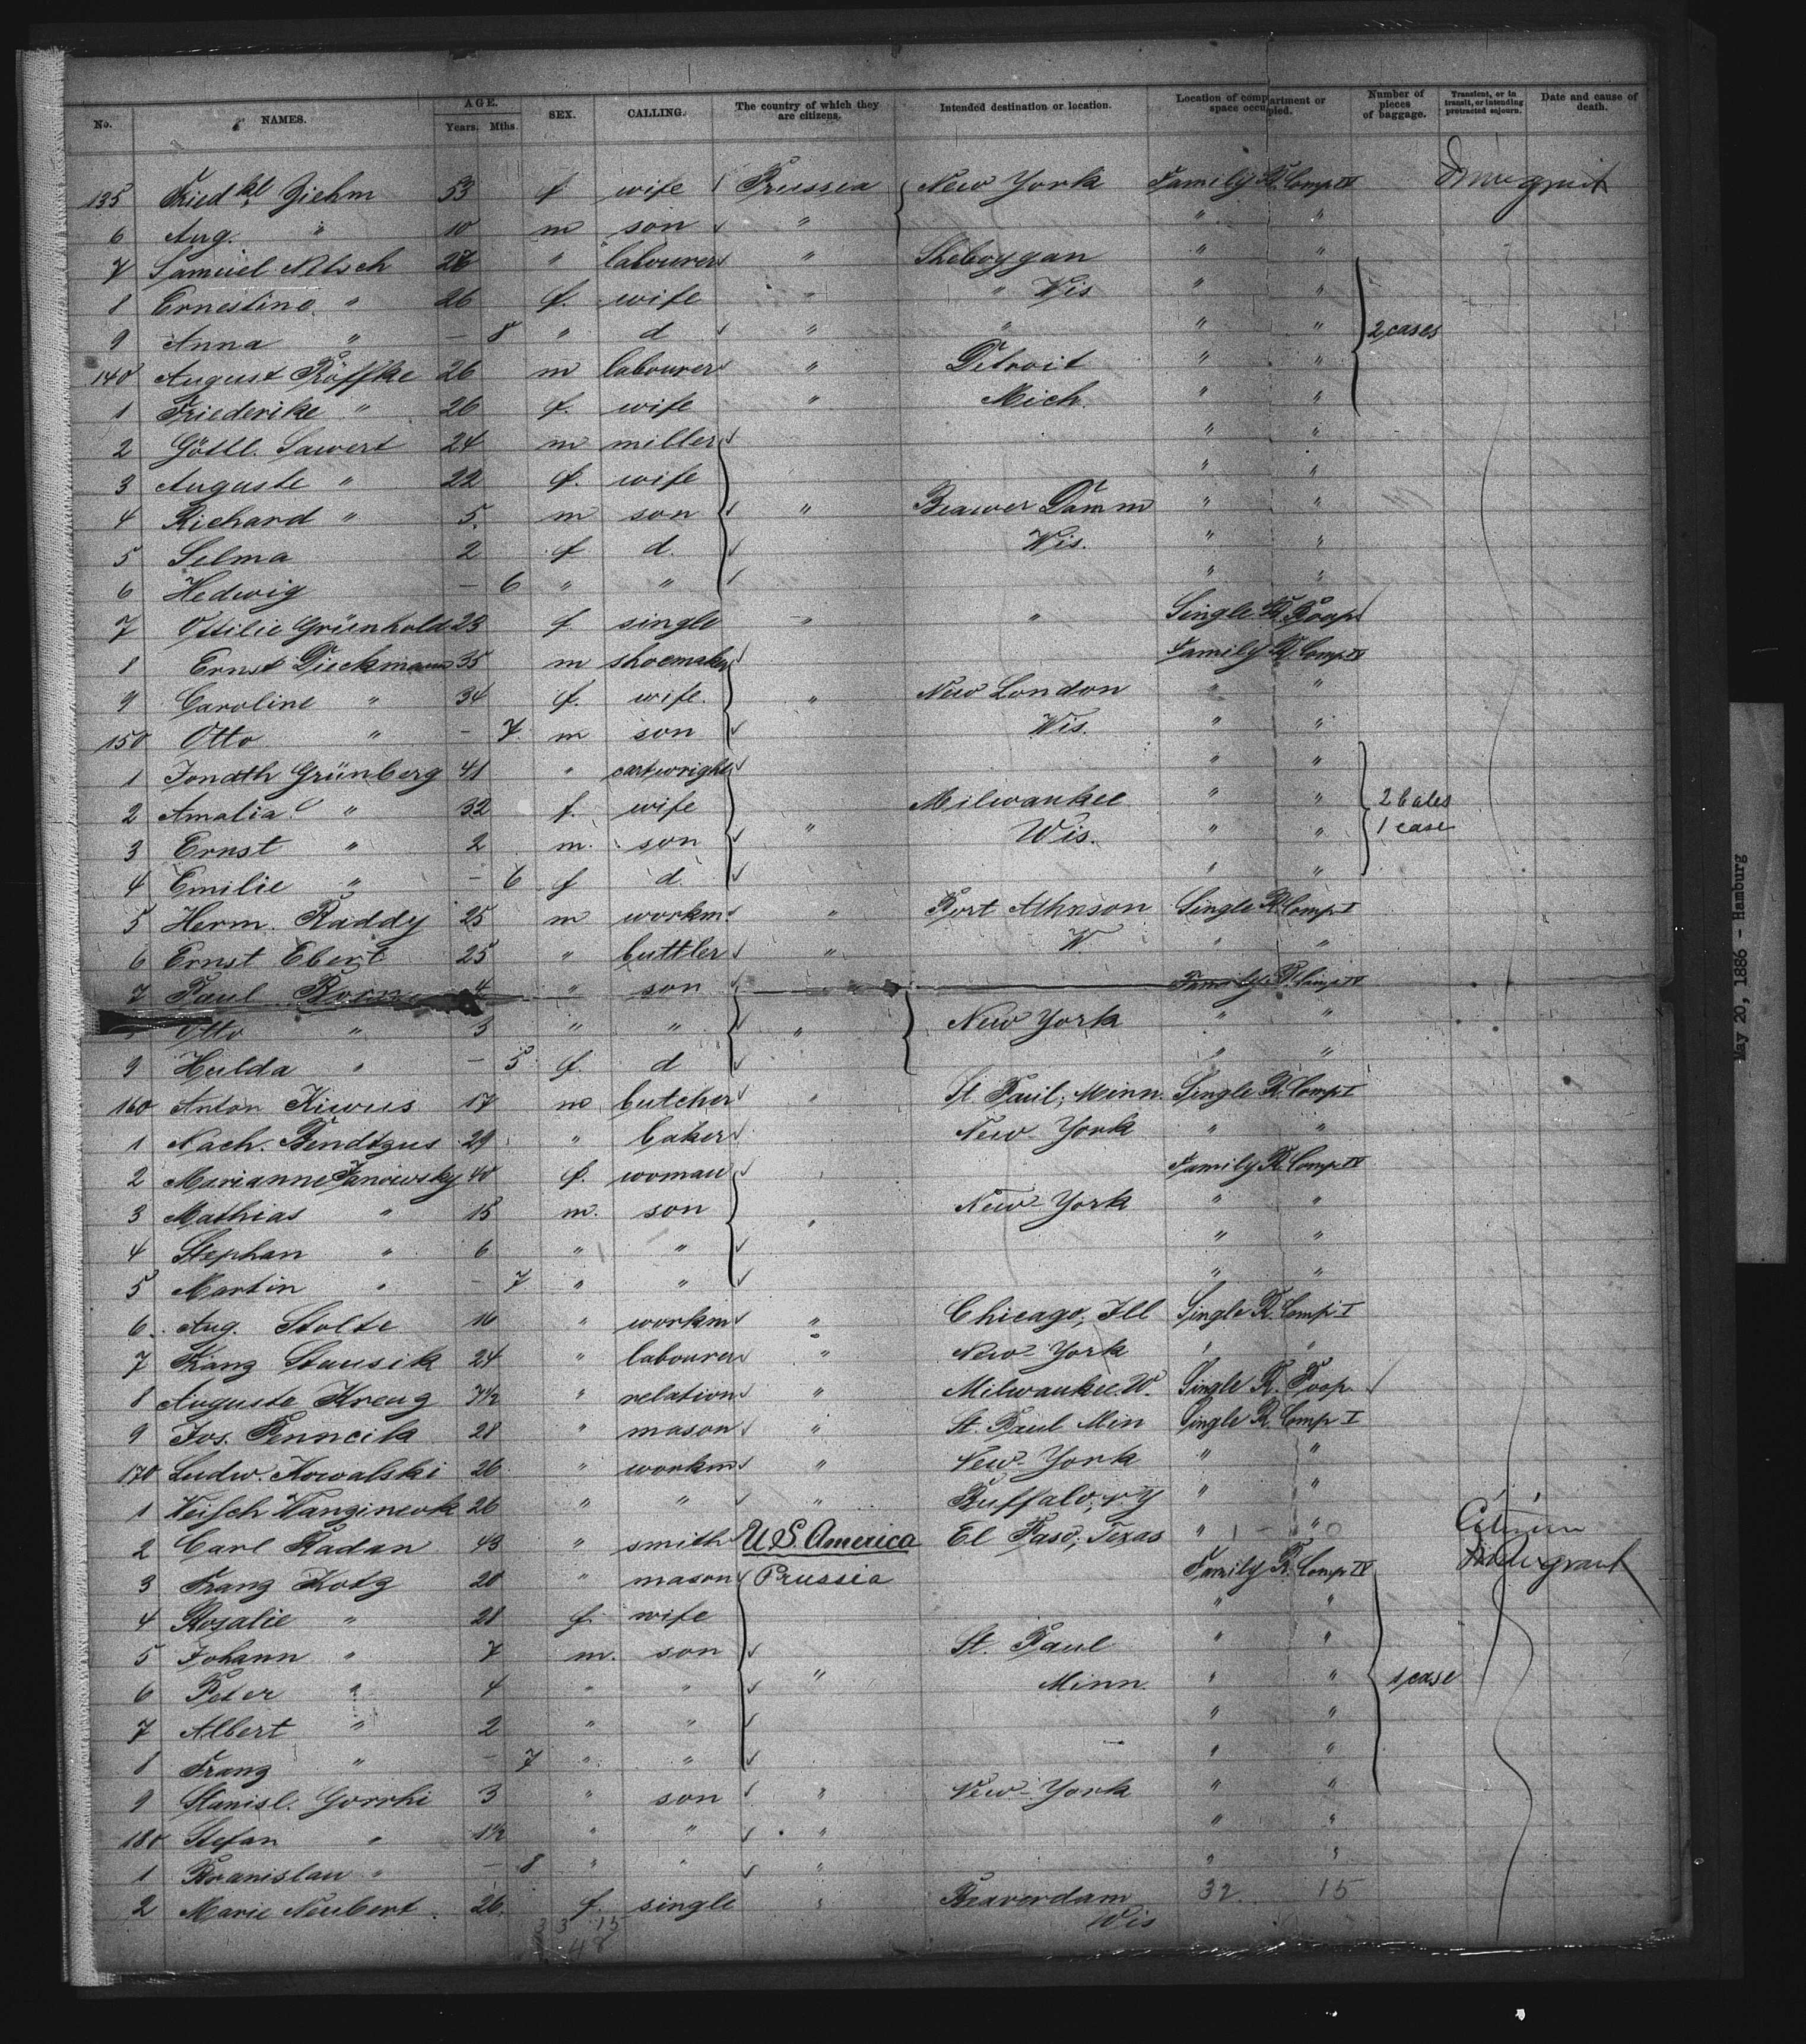 No. NAMES. AGE. Years. Mths. SEX. CALLING. The country of which they are citizens. Intended destination or location. Location of compartment or space occupied. Number of pieces of baggage. Transient, or in transit, or intending protracted sojourn. Date and cause of death.
135 Fried Ziehm 53 f wife Prussia New York Family R. Comp IV
6 Aug. " 10 m son " " "
7 Samuel Nitsch " labourer " Sheboygan " "
8 Ernestine " 26 f. wife " " Wis " "
9 Anna " – 8 " d " " " " 2 cases
140 August Röffke 26 m labourer " Detroit " "
1 Friederike " 26 f. wife " Mich. " "
2 Gottl. Sawert 24 m miller " "
3 Auguste " 22 f. wife " "
4 Richard " 5. m son " Beawer Damm " "
5 Selma 2 f d. Wis. " "
6 Hedwig – 6 " " " "
7 Ottilie Grünhold 23 f. single " " Single R. Poop
8 Ernst Dieckmann 35 m shoemaker Family R. Comp IV
9 Caroline " 34 f. wife. " New London " "
150 Otto " – 7. m son Wis. " "
1 Jonath Grünberg 41 " cartwright " "
2 Amalia " 32 f. wife Milwaukee " " 2 bales
3 Ernst " 2 m. son " Wis. " " 1 case
4 Emilie " – 6 f d. " "
5 Herm. Raddy 25 m workm. " Single R. Comp I
6 Ernst Ebert 25 " buttler " W " "
7 Paul 4 " son " Family R. Comp IV
Otto " 3 " " " New York " "
9 Hulda " – 5 f. d " "
160 Anton Kiwus 17 m. butcher " St. Paul, Minn. Single R. Comp I
1 Nach. 29 " baker New York " "
2 Marianne Janowsky 40 f. woman Family R. Comp IV
3 Mathias " 15 m. son " New York " "
4 Stephan " 6 " " " "
5 Martin " – 7 " " " "
6. Aug. Stolte 16 " workm " Chicago, Ill Single R. Comp I
7 Franz Stausik 24 " labourer " New York " "
8 Auguste Kreug 7½ " relation " Milwaukee W. Single R. Poop.
9 Jos. Penncik 28 " mason " St. Paul Min Single R. Comp I
170 Ludw. Kowalski 26 " workm " New York " "
1 26 " " " Buffalo, N.Y " "
2 Carl Radan 43 " smith U.S. America El Paso, Texas " " Citizen
3 Franz Kotz 28 " mason Prussia Family R. Comp IV
4 Rosalie " 28 f. wife " "
5 Johann " 7 m. son St. Paul " "
6 Peter " 4 " " " Minn. " " 1 case
7 Albert " 2 " " " "
8 Franz " – 7 " " " "
9 Stanisl. Gorrhi 3 " son " New York " "
180 Stefan " 1½ " " " " "
1 Branislau " – 8 " " " " "
2 Marie Neubert 26. f. single " Beaverdam 32. 15
Wis
3 3 15
48
May 20, 1886 - Hamburg